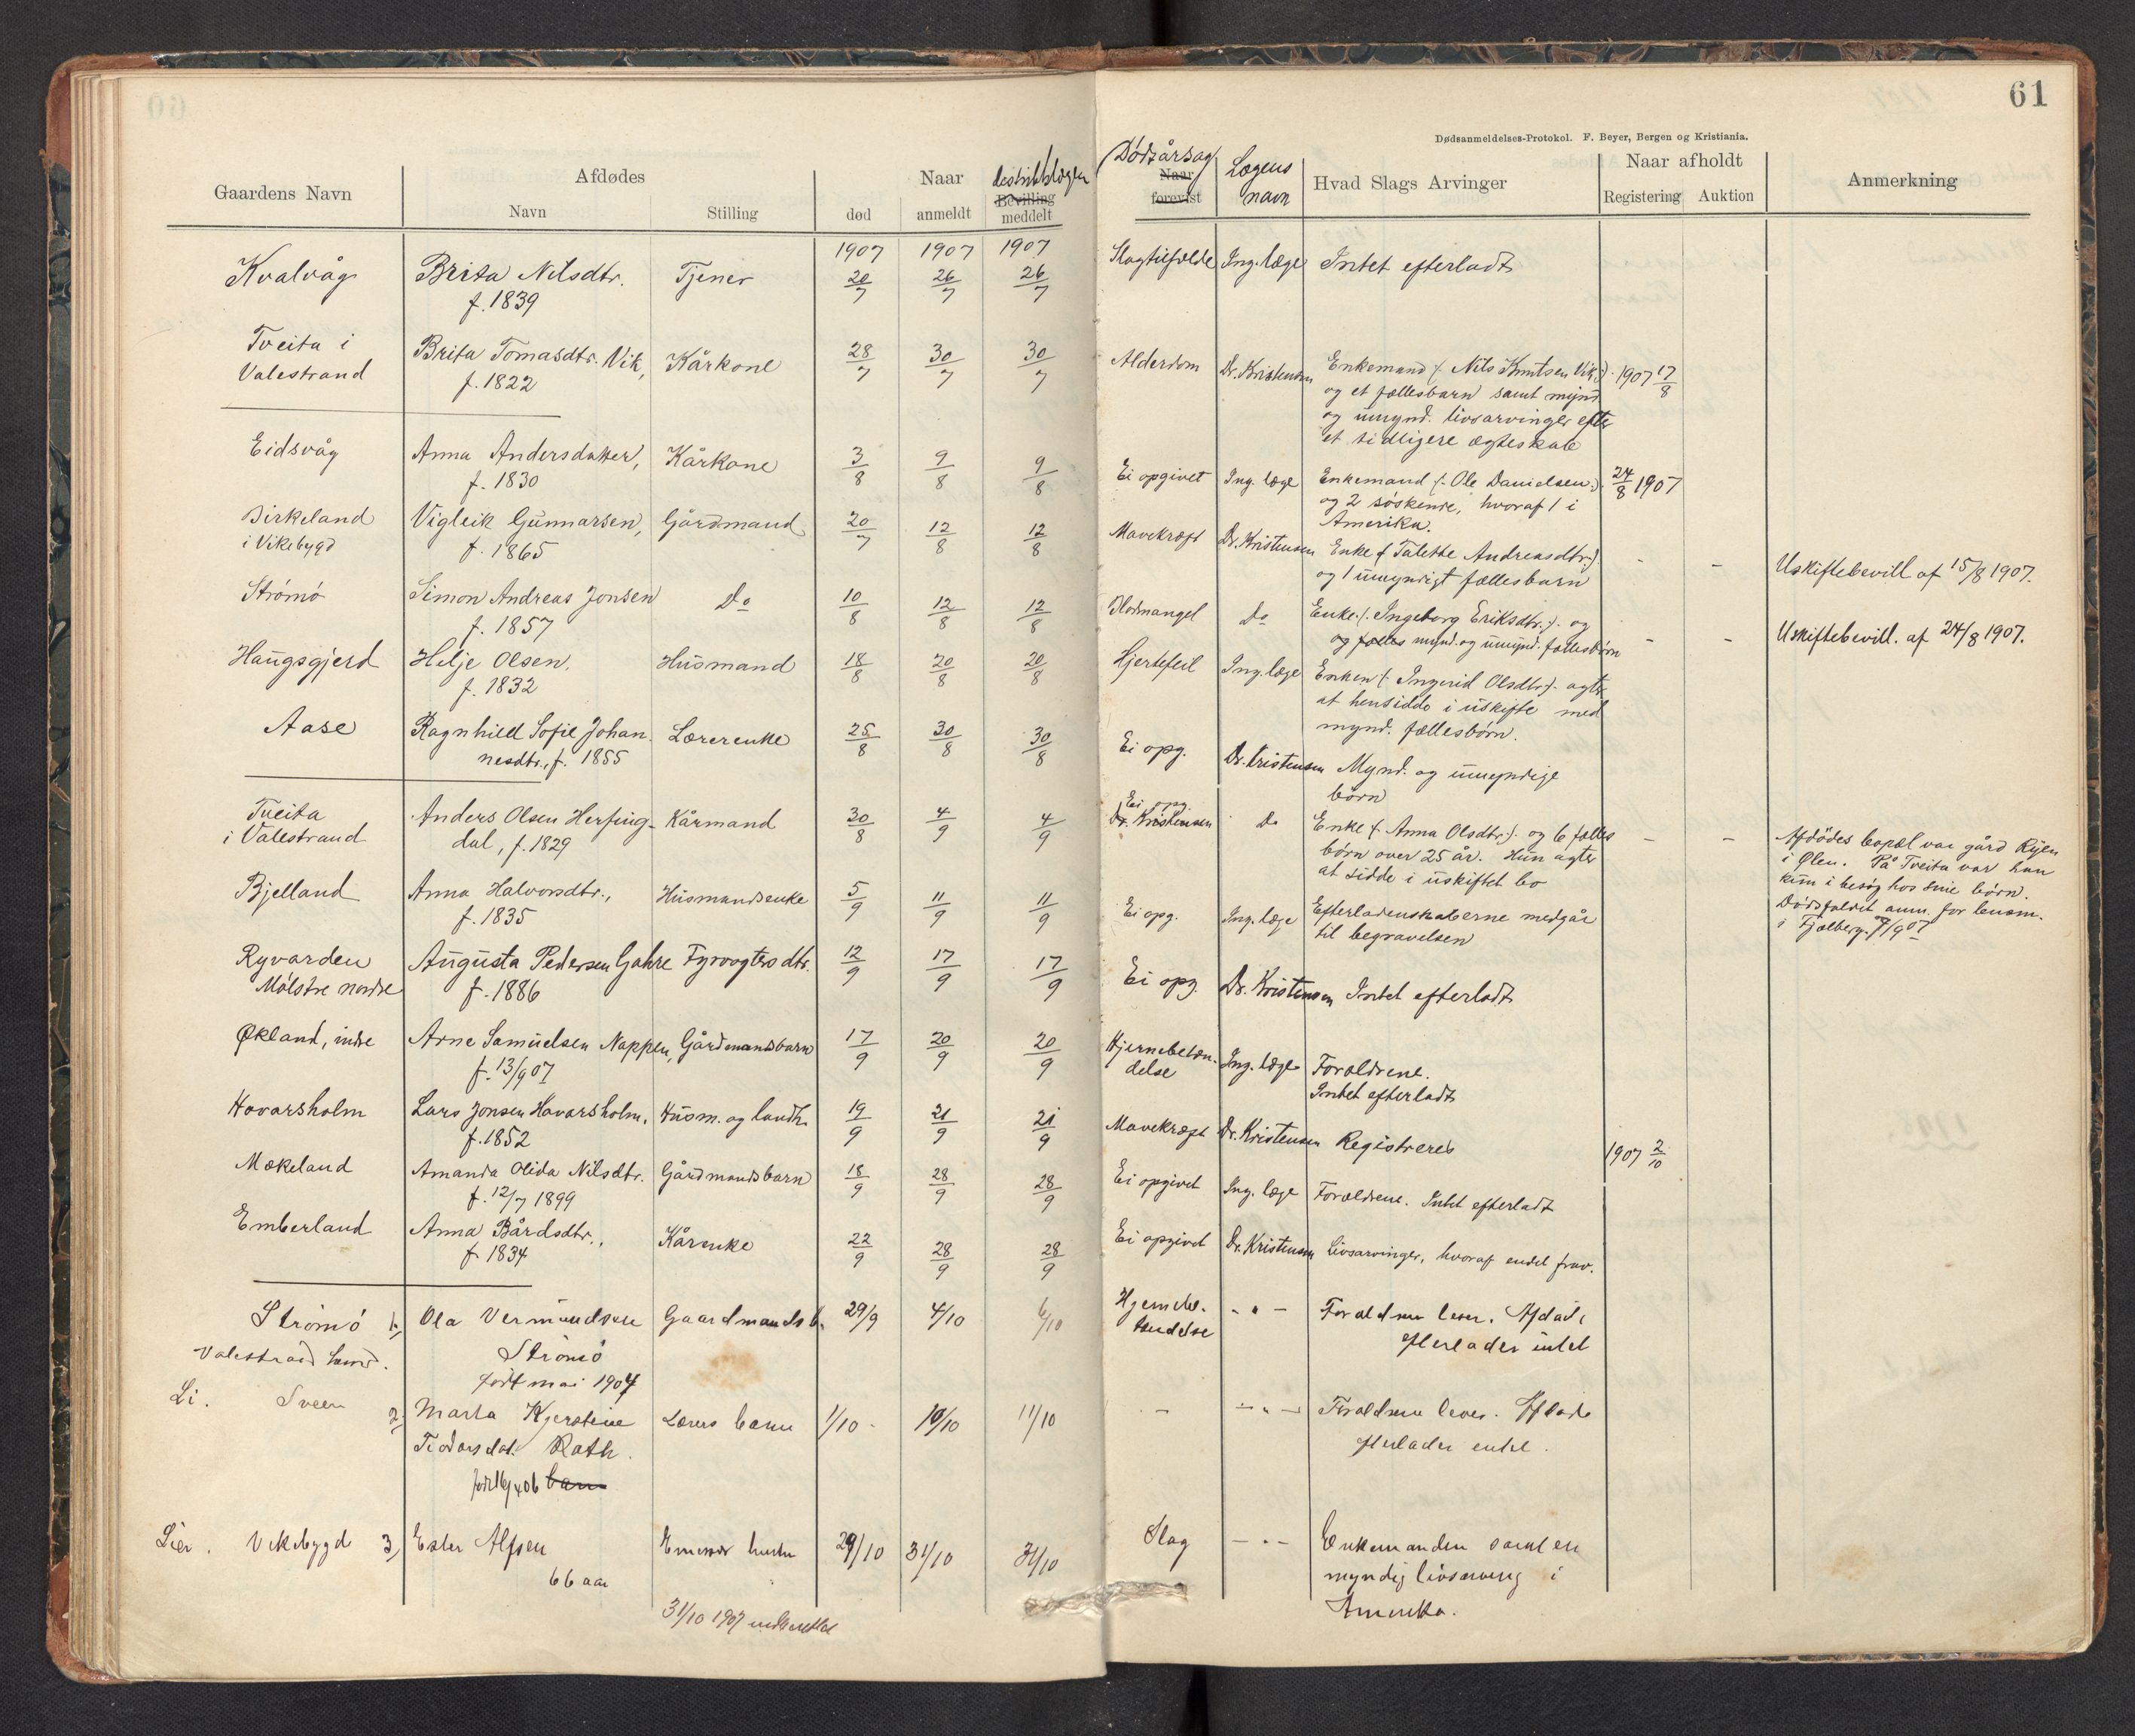 61
Dødsanmeldelses-Protokol. F. Beyer, Bergen og Kristiania.
Gaardens Navn
Afdødes
Navn
Stilling
Naar
død
anmeldt
Bevilling
meddelt
Dødsårsag
Naar
forevist
Lægens
navn
Hvad Slags Arvinger
Naar afholdt
Registering
Auktion
Anmerkning
1907 1907 1907
Kvalvåg Brita Nilsdtr. Tjener 20/7 26/7 26/7 Slagtilfælde Ing. læge Intet efterladt
f. 1839
Tveita i
Valestrand
Brita Tomasdtr. Vik, Kårkone 28/7 30/7 30/7 Alderdom Dr. Kristensen Enkemand (. Nils Knutsen Vik .) 1907 17/8
f. 1822
og et fællesbarn samt mynd.
og umynd. livsarvinger efter
et tidligere ægteskab
Eidsvåg Anna Andersdatter, Kårkone 3/8 9/8 9/8 Ei opgivet Ing. læge Enkemand (. Ole Danielsen .) 24/8 1907
f. 1830
og 2 søskende, hvoraf 1 i
Amerika.
Birkeland
i Vikebygd
Vigleik Gunnarsen, Gårdmand 20/7 12/8 12/8 Mavekræft Dr. Kristensen Enke (. Talette Andreasdtr .) - - Uskiftebevill af 15/8 1907.
f. 1865
og 1 umyndigt fællesbarn
Strömö Simon Andreas Jonsen Do 10/8 12/8 12/8 Blodmangel Do Enke (. Ingeborg Eriksdtr .) og - - Uskiftebevill. af 24/8 1907.
f. 1857
og fælles mynd. og umynd. fællesbörn
Haugsgjerd Helje Olsen, Husmand 18/8 20/8 20/8 Hjertefeil Ing. læge Enken (. Ingerid Olsdtr .) agter
f. 1832
at hensidde i uskifte med
mynd. fællesbörn.
Aase Ragnhild Sofie Johan- Lærerenke 25/8 30/8 30/8 Ei opg. Dr. Kristensen Mynd. og umyndige
nesdtr., f. 1855
börn
Tveita
i Valestrand
Anders Olsen Herfing- Kårmand 30/8 4/9 4/9 Ei opg. Do Enke (. Anna Olsdtr .) og 6 fælles - -
Dr. Kristensen
dal, f. 1829
börn over 25 år. Hun agter
at sidde i uskiftet bo
Afdödes bopæl var gård Rijen
i Ølen. På Tveita var han
kun i besög hos sine börn.
Dödsfaldet anm. for lensm.
i Fjelberg 7/9 07
Bjelland Anna Halvorsdtr., Husmandsenke 5/9 11/9 11/9 Ei opg. Ing. læge Efterladenskaberne medgår
f. 1835
til begravelsen
Ryvarden
Mölstre nordre
Augusta Pedersen Gahre Fyrvogters dtr. 12/9 17/9 17/9 Ei opg. Dr. Kristensen Intet efterladt
f. 1886
Økland, indre Arne Samuelsen Nappen, Gårdmandsbarn 17/9 20/9 20/9 Hjernebetæn- Ing. læge Forældrene.
f. 13/9 07
delse
Intet efterladt
Hovarsholm Lars Jonsen Havarsholm, Husm. og landh. 19/9 21/9 21/9 Mavekræft Dr. Kristensen Registreres 1907 2/10
f. 1852
Mækeland Amanda Olida Nilsdtr. Gårdmandsbarn 18/9 28/9 28/9 Ei opgivet Ing. læge Forældrene. Intet efterladt
f. 12/7 1899
Emberland Anna Bårdsdtr., Kårenke 22/9 28/9 28/9 Ei opgivet Dr. Kristensen Livsarvinger, hvoraf endel frav.
f. 1834
Strömö 1. Ola Vermundsen Gaardmandsb. 29/9 4/10 6/10 - " - Forældrene lever. Afdöde
Valestrand
Strömö
efterlader intet
födt mai 1904
Li. Sveen 2. Marta Kjerstine Lærers barn 1/10 10/10 11/10 - - " - Forældrene lever. Afdöde
Rath.
efterlader intet.
barn
Lier. Vikebygd 3, Ester Alfsen 29/10 31/10 31/10 Slag - " - Enkemanden samt en
66 aar
myndig livsarving i
Amerika.
31/10 1907